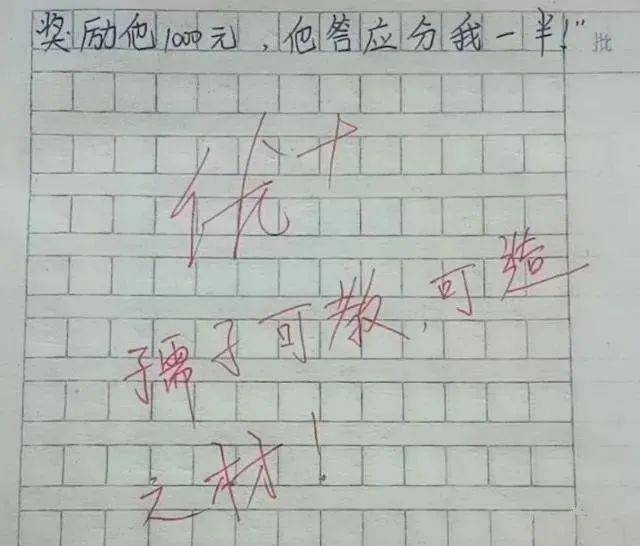 奖励他1000元,他答应分我一半!”
批
优+
孺子可教,可造
之材!